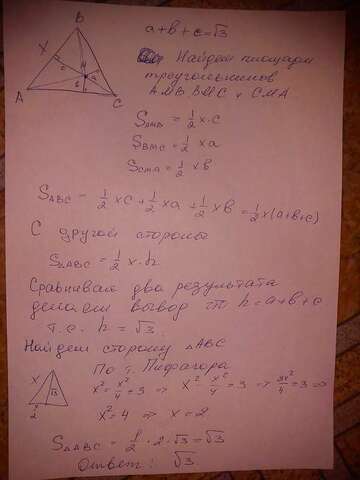 B
a + b + c = √3
X
M
c
a
b
A
C
Найдем площади
треугольников
AMB BMC и CMA
S AMB = 1/2 x·c
S BMC = 1/2 xa
S CMA = 1/2 xb
S ABC = 1/2 xc + 1/2 xa + 1/2 xb = 1/2 x(a+b+c)
С другой стороны
S ABC = 1/2 x·h
Сравнивая два результата
делаем вывод что h = a+b+c
т.е. h = √3.
Найдем сторону △ABC
По т. Пифагора
x
√3
x/2
x² = x²/4 + 3 ⇒ x² - x²/4 = 3 ⇒ 3x²/4 = 3 ⇒
x² = 4 ⇒ x = 2
S △ABC = 1/2 · 2 · √3 = √3
Ответ: √3